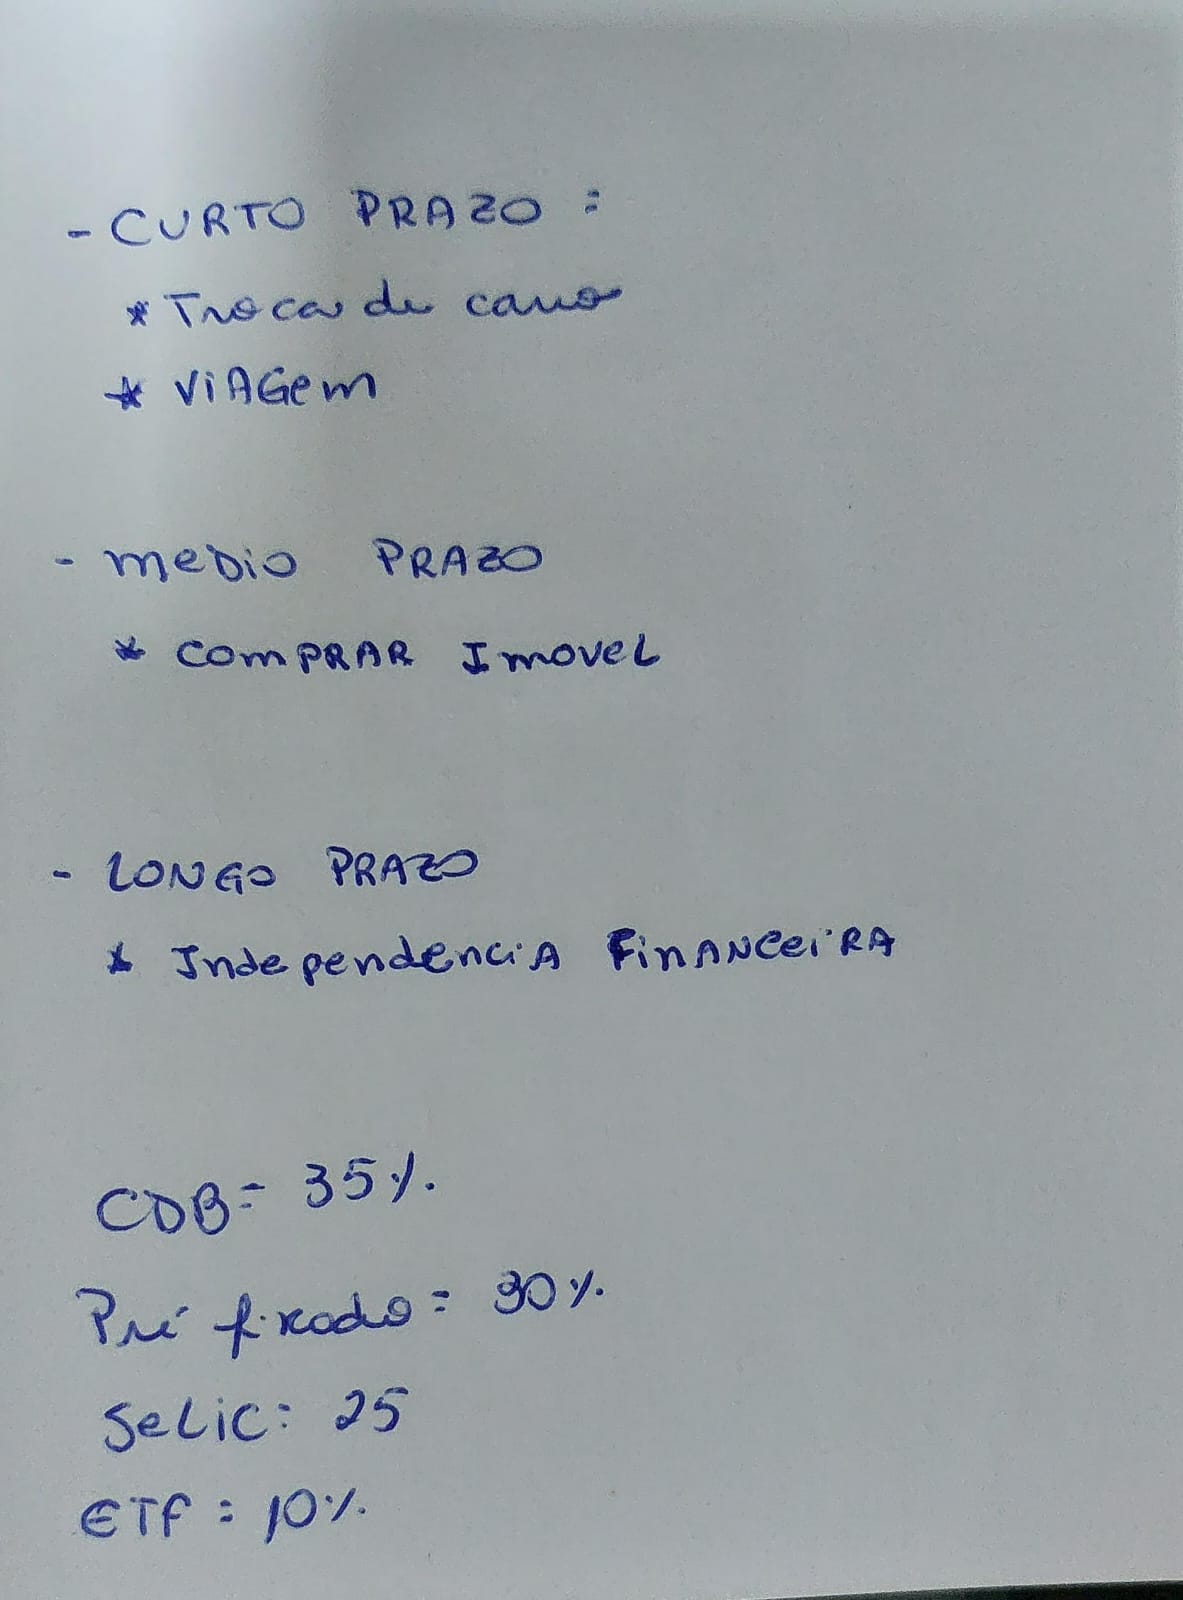 - CURTO PRAZO :
* Troca de carro
* ViAGem
- meDio PRAZO
* comPRAR ImoveL
- LONGO PRAZO
* IndependenciA FinANCeiRA
CDB = 35%.
Pré fixado = 30%.
SeLic: 25
ETF = 10%.